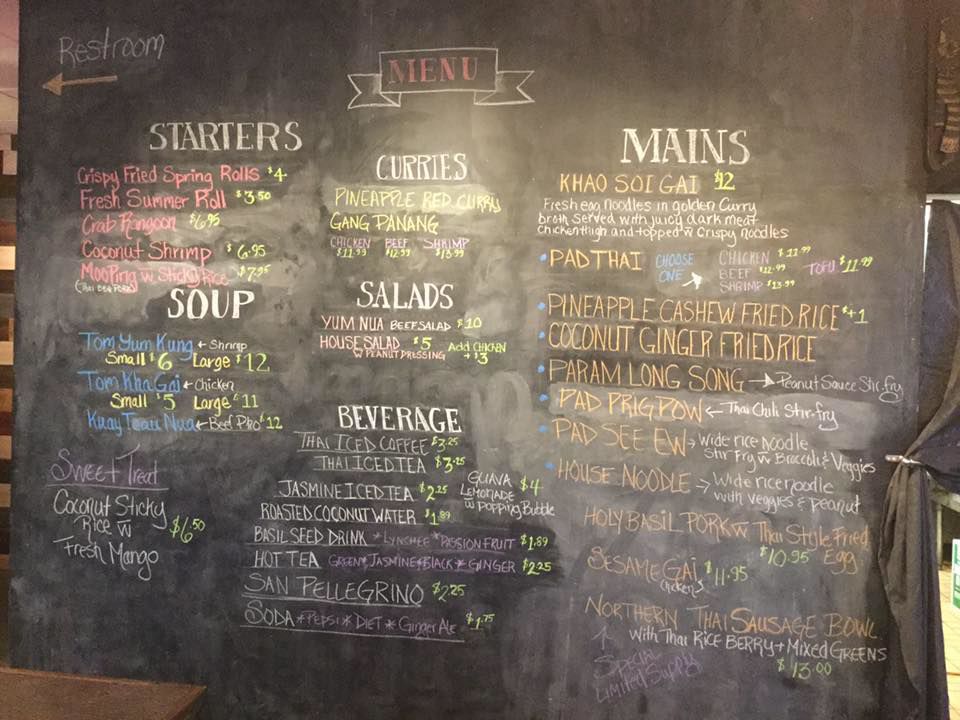 Restroom
MENU
STARTERS
Crispy Fried Spring Rolls $4
Fresh Summer Roll $3.50
Crab Rangoon $6.95
Coconut Shrimp $6.95
Moo Ping w Sticky Rice $7.95
(Thai BBQ Pork)
SOUP
Tom Yum Kung ← Shrimp
Small $6 Large $12
Tom Kha Gai ← Chicken
Small $5 Large $11
Kuay Teaw Nua ← Beef Pho $12
Sweet Treat
Coconut Sticky
Rice w
Fresh Mango
$6.50
CURRIES
PINEAPPLE RED CURRY
GANG PANANG
CHICKEN BEEF SHRIMP
$11.99 $12.99 $13.99
SALADS
YUM NUA BEEF SALAD $10
HOUSE SALAD $5 Add CHICKEN
W PEANUT DRESSING + $3
BEVERAGE
THAI ICED COFFEE $3.25
THAI ICED TEA $3.25
JASMINE ICED TEA $2.25
GUAVA $4
LEMONADE
w popping Bubble
ROASTED COCONUT WATER $1.89
BASIL SEED DRINK * LYNCHEE * PASSION FRUIT $1.89
HOT TEA GREEN*JASMINE*BLACK*GINGER $2.25
SAN PELLEGRINO $2.25
SODA * PEPSI * DIET * Ginger Ale $1.75
MAINS
KHAO SOI GAI $12
Fresh egg noodles in golden Curry
broth Served with juicy dark meat
Chicken thigh and topped w Crispy noodles
• PAD THAI CHOOSE ONE → CHICKEN $11.99
BEEF $12.99
SHRIMP $13.99
TOFU $11.99
• PINEAPPLE CASHEW FRIED RICE $+1
• COCONUT GINGER FRIED RICE
• PARAM LONG SONG → Peanut Sauce Stir-fry
• PAD PRIG POW ← Thai Chili Stir-fry
• PAD SEE EW → Wide rice Noodle
Stir Fry w Broccoli & Veggies
• HOUSE NOODLE → Wide rice noodle
with veggies & peanut
HOLY BASIL PORK w Thai Style Fried
Egg
$10.95
SESAME GAI $11.95
Chicken
NORTHERN THAI SAUSAGE BOWL
with Thai RICE BERRY + MIXED GREENS
$13.00
Special
Limited Supply